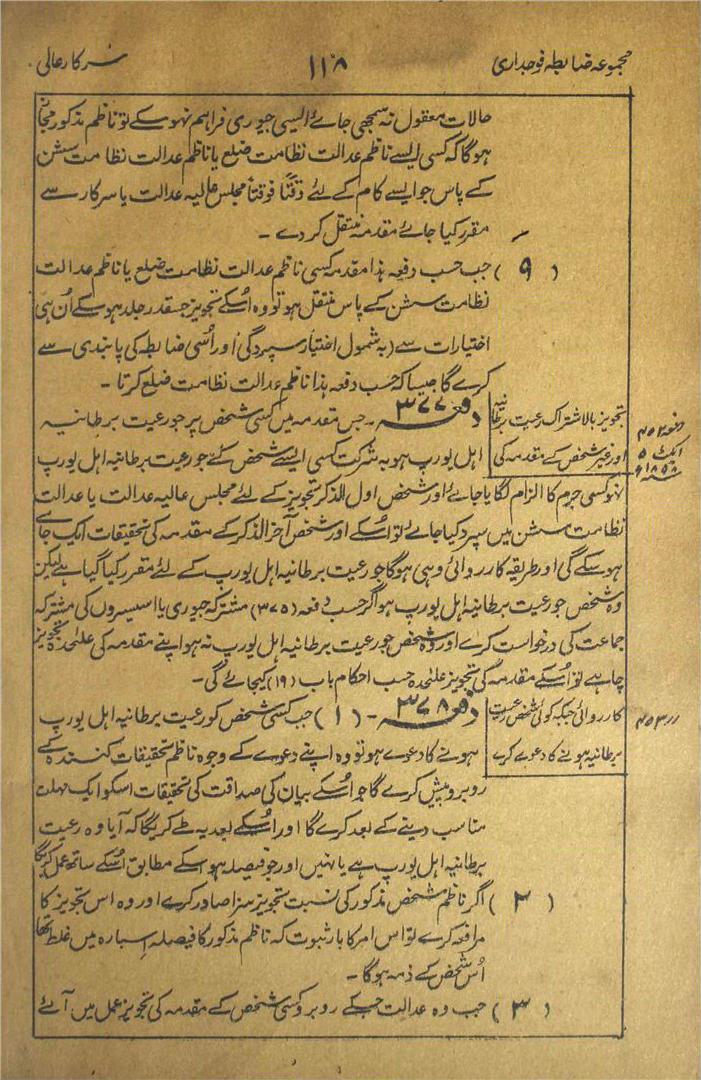 مجموعہ ضابطہ فوجداری
۱۱۸
سرکار عالی.
حالات معقول نہ سمجھی جائے ایسی جیوری فراہم نہو سکے تو ناظم مذکور مجاز
ہوگا کہ کسی ایسے ناظم عدالت نظامت ضلع یا ناظم عدالت نظامت سشن
کے پاس جو ایسے کام کے لئے وقتًا فوقتاً مجلس عالیہ عدالت یا سرکار سے
مقرر کیا جائے مقدمہ منتقل کر دے ۔
(۹) جب حسب دفعہ ہذا مقدمہ کسی ناظم عدالت نظامت ضلع یا ناظم عدالت
نظامت سشن کے پاس منتقل ہو تو وہ اُسکے تجویز جسقدر جلد ہو سکے اُن ہی
اختیارات سے (بہ شمول اختیار سپردگی) اور اُسی ضابطہ کی پابندی سے
کرے گا جیسا کہ حسب دفعہ ہذا ناظم عدالت نظامت ضلع کرتا ۔
تجویز بالاشتراک رعیت برطانیہ
اور غیر شخص کے مقدمہ کی
دفعہ ۴۵۲
ایکٹ ۵
۱۸۹۸ء
دفعہ ۳۷۷ ۔ جس مقدمہ میں کسی شخص پر جو رعیت برطانیہ
اہل یورپ ہو بہ شرکت کسی ایسے شخص کے جو رعیت برطانیہ اہل یورپ
نہو کسی جرم کا الزام لگایا جائے اور شخص اول الذکر تجویز کے لئے مجلس عالیہ عدالت یا عدالت
نظامت سشن میں سپرد کیا جائے تو اُسکے اور شخص آخر الذکر کے مقدمہ کی تحقیقات ایک جائے
ہو سکے گی اور طریقہ کارروائی وہی ہوگا جو رعیت برطانیہ اہل یورپ کے لئے مقرر کیا گیا ہے لیکن
وہ شخص جو رعیت برطانیہ اہل یورپ ہو اگر حسب دفعہ (۳۷۵) مشترکہ جیوری یا اسیسروں کی مشترکہ
جماعت کی درخواست کرے اور وہ شخص جو رعیت برطانیہ اہل یورپ نہ ہو اپنے مقدمہ کی علٰحدہ تجویز
چاہے تو اُسکے مقدمہ کی تجویز علٰحدہ حسب احکام باب (۱۹) کیجائے گی ۔
کارروائی جبکہ کوئی شخص رعیت
برطانیہ ہونے کا دعوے کرے
〃 ۴۵۳
دفعہ ۳۷۸ ۔ (۱) جب کسی شخص کو رعیت برطانیہ اہل یورپ
ہونے کا دعوے ہو تو وہ اپنے دعوے کے وجوہ ناظم تحقیقات کنندہ کے
روبرو پیش کرے گا جو اُسکے بیان کی صداقت کی تحقیقات اسکو ایک مہلت
مناسب دینے کے بعد کرے گا اور اُسکے بعد یہ طے کریگا کہ آیا وہ رعیت
برطانیہ اہل یورپ ہے یا نہیں اور جو فیصلہ ہو اُسکے مطابق اُسکے ساتھ عمل کریگا
(۲) اگر ناظم شخص مذکور کی نسبت تجویز سزا صادر کرے اور وہ اس تجویز کا
مرافعہ کرے تو اس امر کا بار ثبوت کہ ناظم مذکور کا فیصلہ اسبارہ میں غلط تھا
اُس شخص کے ذمہ ہوگا ۔
(۳) جب وہ عدالت جسکے روبرو کسی شخص کے مقدمہ کی تجویز عمل میں آئے